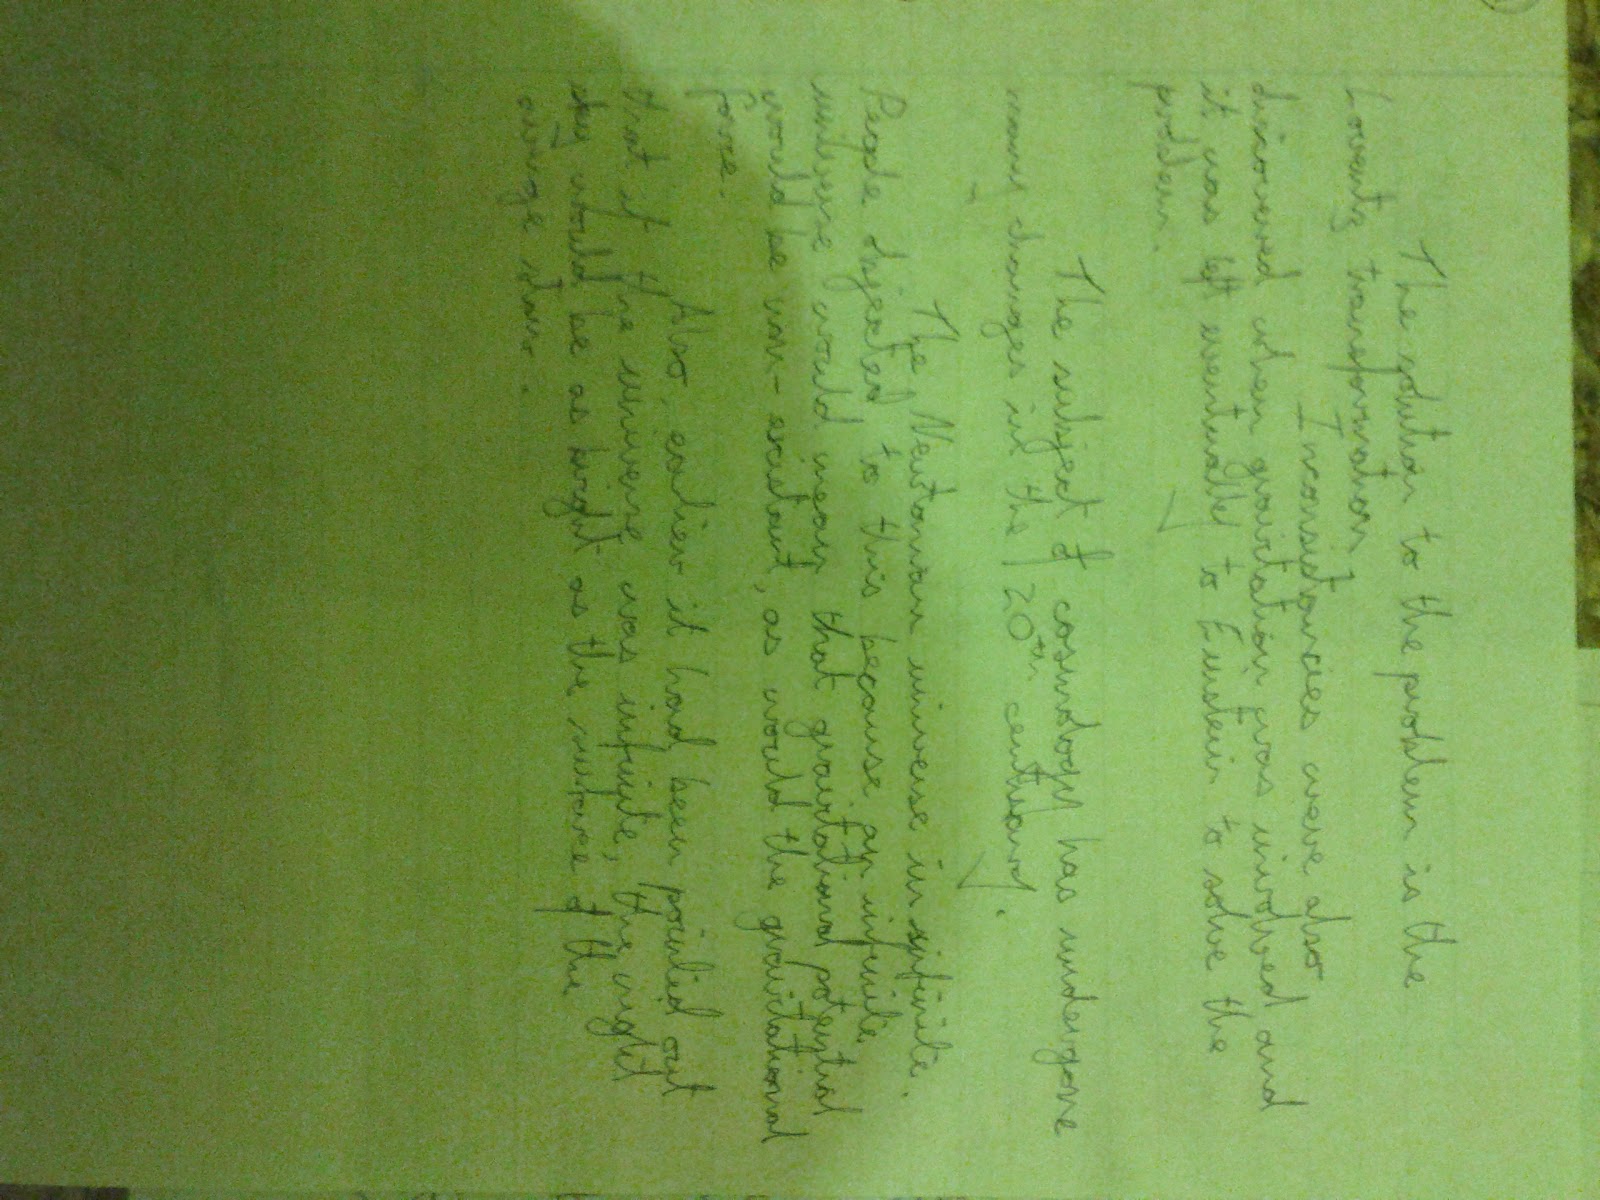 The solution to the problem is the
Lorentz transformation
Inconsistancies were also
discovered when gravitation was involved and
it was left eventually to Einstein to solve the
problem.
The subject of cosmology has undergone
many changes in the 20th century.
The Newtonian universe is infinite.
People objected to this because an infinite
universe would mean that gravitational potential
would be non-existant, as would the gravitational
force.
Also, earlier it had been pointed out
that if the universe was infinite, the night
sky would be as bright as the surface of the
average star.